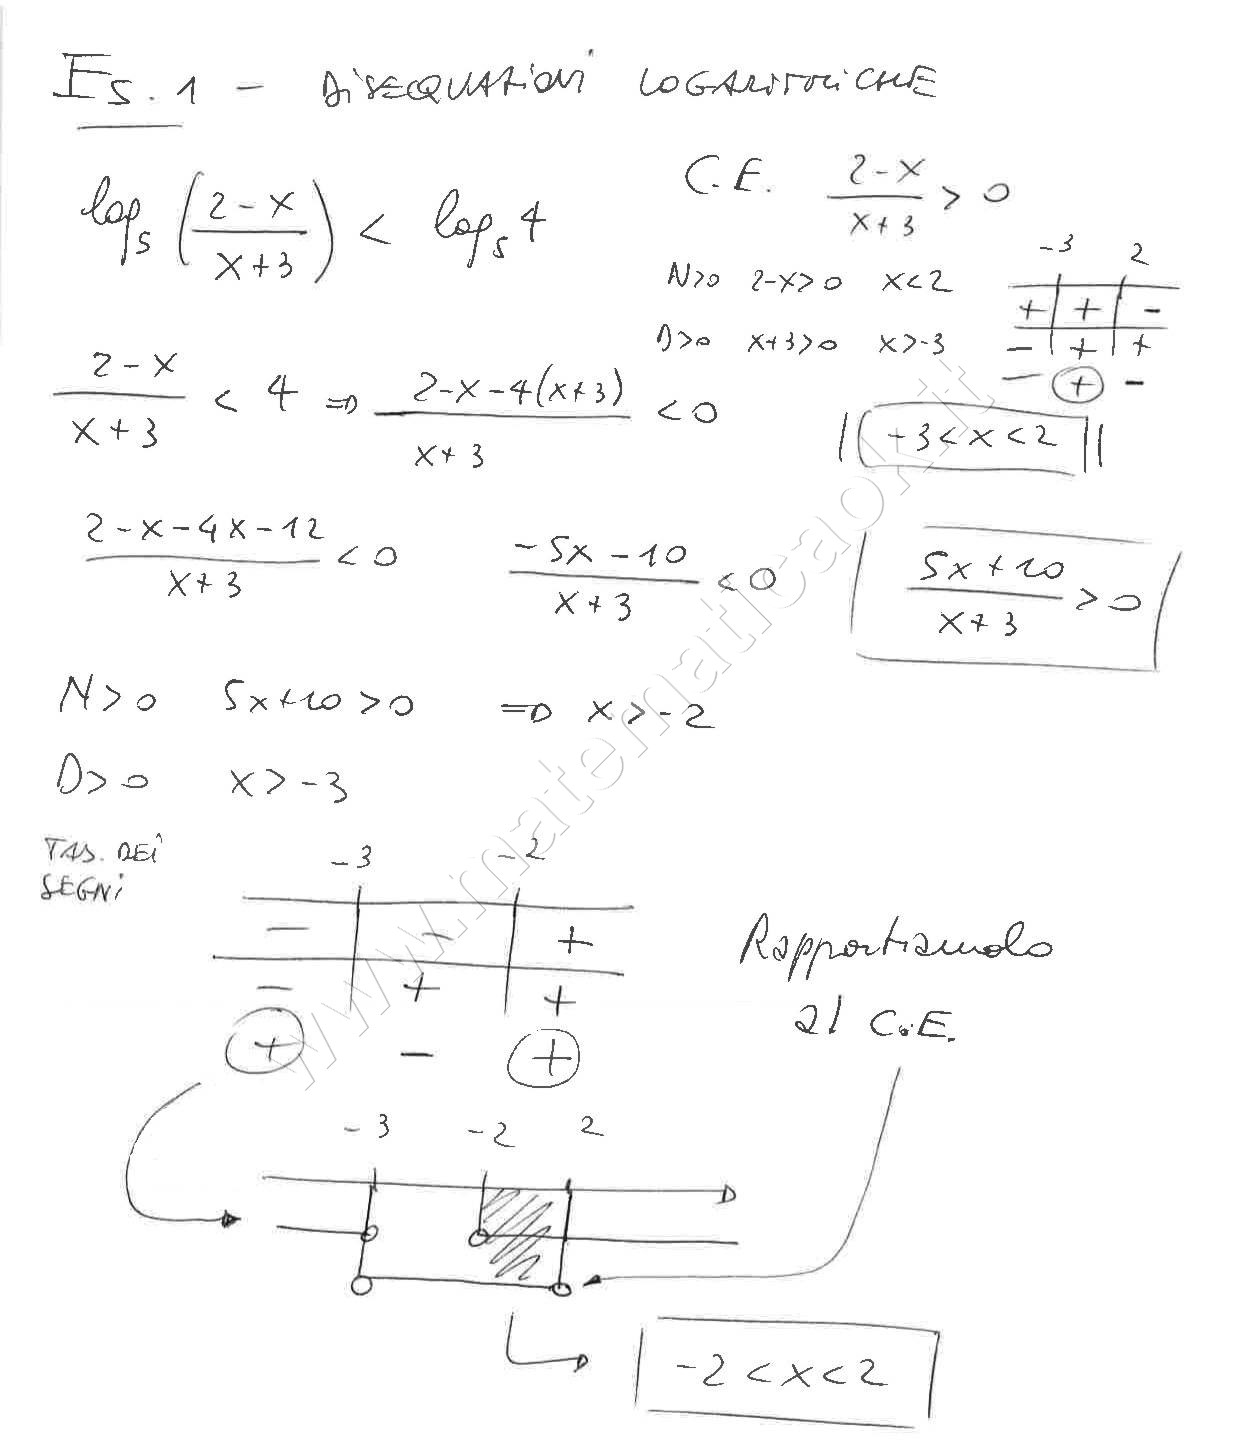 Es. 1 - DISEQUAZIONI LOGARITMICHE
log₅ ((2-x)/(x+3)) < log₅ 4
C.E. (2-x)/(x+3) > 0
N>0 2-x>0 x<2
D>0 x+3>0 x>-3
-3 2
+ + -
- + +
- + -
-3<x<2
(2-x)/(x+3) < 4 ⇒ (2-x-4(x+3))/(x+3) < 0
(2-x-4x-12)/(x+3) < 0 (-5x-10)/(x+3) < 0 (5x+10)/(x+3) > 0
N>0 5x+10>0 ⇒ x>-2
D>0 x>-3
TAB. DEI
SEGNI
-3 -2
- - +
- + +
+ - +
Rapportiamolo
al C.E.
-3 -2 2
-2<x<2
www.matematicaok.it